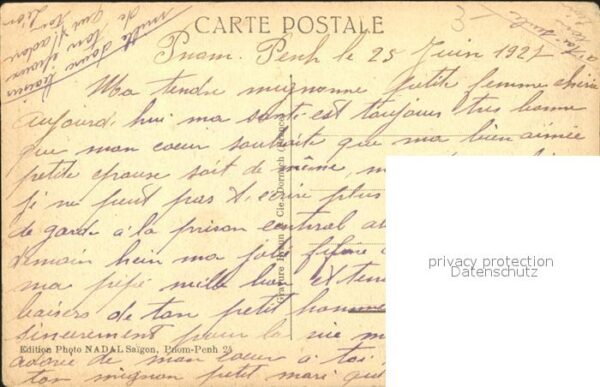 CARTE POSTALE
3
Pnom-Penh le 25 Juin 1927
Ma tendre mignonne petite femme chérie
aujourd'hui ma santé est toujours très bonne
que mon coeur souhaite que ma bien aimée
petite épouse soit de même,
je ne peut pas t'écrire plus
de garde à la prison central
demain hein ma jolie
ma pépé mille bon et tendre
baisers de ton petit homme
sincerement pour la vie
adorée de mon coeur à toi
ton mignon petit mari qui
mille doux baisers
de ton époux
qui t'adore
Gravure Braun & Cie, Dornach
Edition Photo NADAL Saïgon, Pnom-Penh 24
privacy protection
Datenschutz